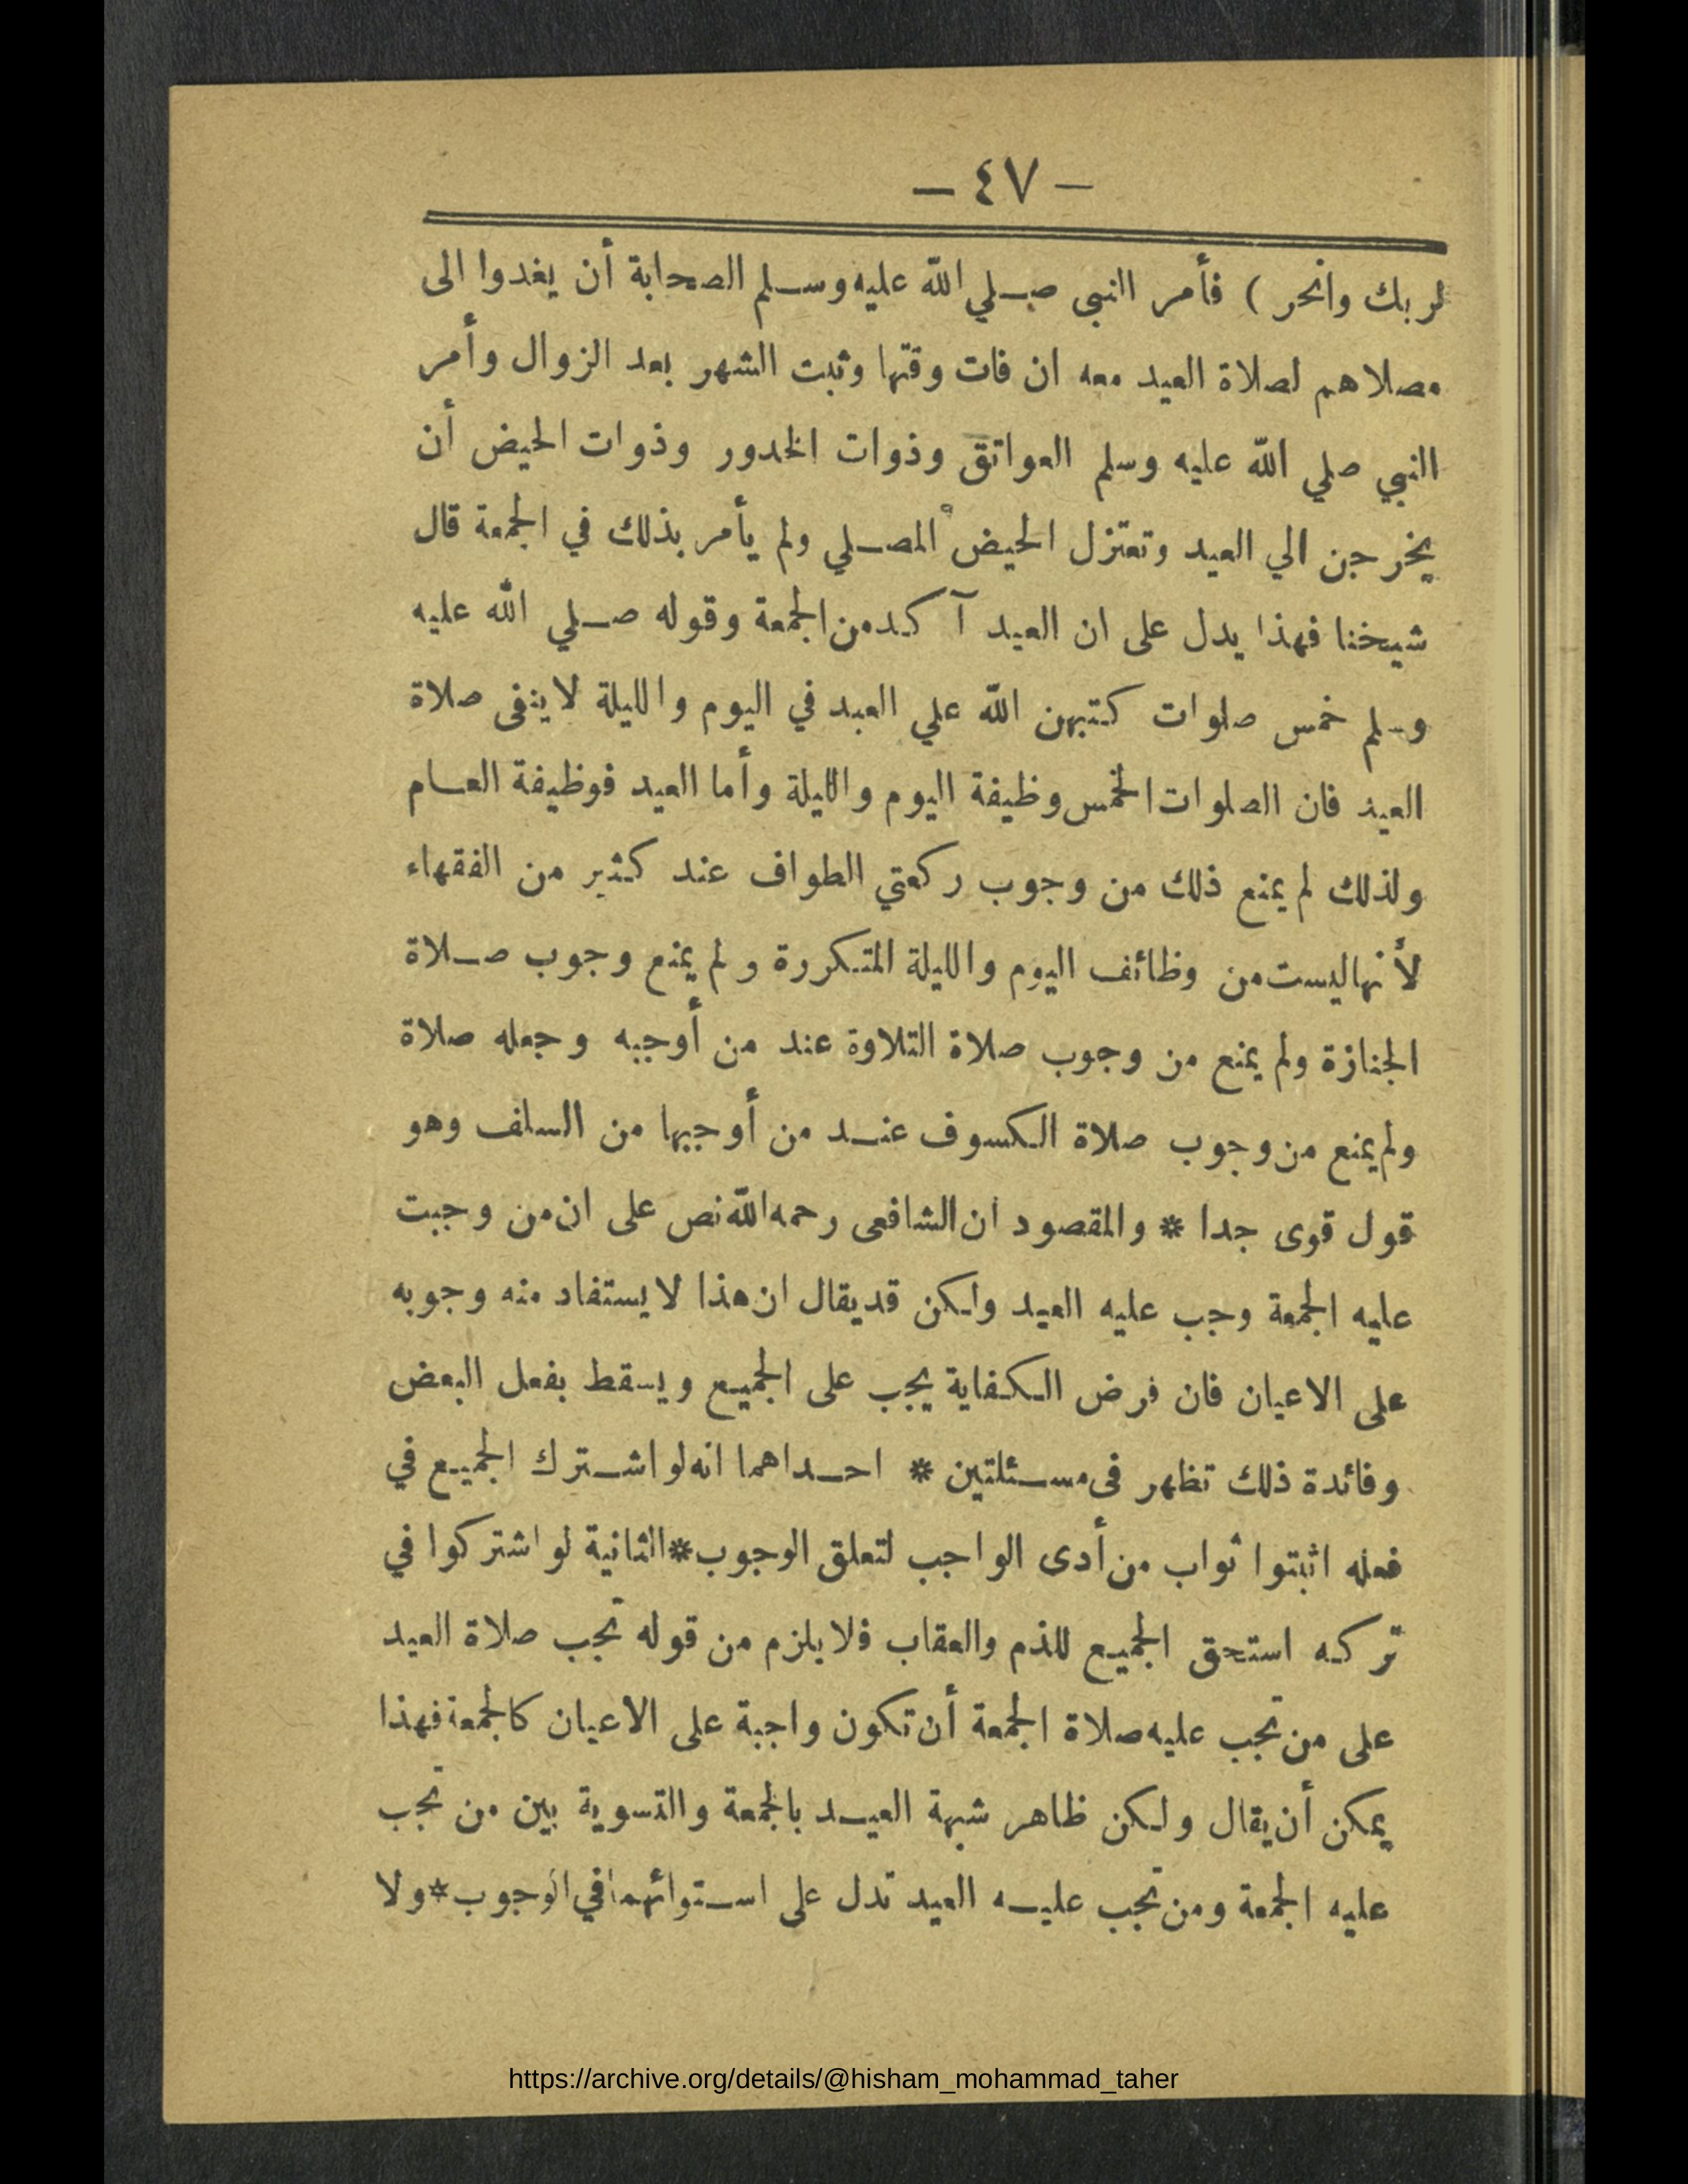 – ٤٧ –
لربك وانحر ) فأمر النبى صلي الله عليه وسلم الصحابة أن يغدوا الى
مصلاهم لصلاة العيد معه ان فات وقتها وثبت الشهر بعد الزوال وأمر
النبي صلي الله عليه وسلم العواتق وذوات الخدور وذوات الحيض أن
يخرجن الي العيد وتعتزل الحيض المصلي ولم يأمر بذلك في الجمعة قال
شيخنا فهذا يدل على ان العيد آكد من الجمعة وقوله صلي الله عليه
وسلم خمس صلوات كتبهن الله علي العبد في اليوم والليلة لا ينفى صلاة
العيد فان الصلوات الخمس وظيفة اليوم والليلة وأما العيد فوظيفة العام
ولذلك لم يمنع ذلك من وجوب ركعتي الطواف عند كثير من الفقهاء
لأنها ليست من وظائف اليوم والليلة المتكررة ولم يمنع وجوب صلاة
الجنازة ولم يمنع من وجوب صلاة التلاوة عند من أوجبه وجعله صلاة
ولم يمنع من وجوب صلاة الكسوف عند من أوجبها من السلف وهو
قول قوى جدا * والمقصود ان الشافعى رحمه الله نص على ان من وجبت
عليه الجمعة وجب عليه العيد ولكن قد يقال ان هذا لا يستفاد منه وجوبه
على الاعيان فان فرض الكفاية يجب على الجميع ويسقط بفعل البعض
وفائدة ذلك تظهر فى مسئلتين * احداهما انه لو اشترك الجميع في
فعله اثبتوا ثواب من أدى الواجب لتعلق الوجوب * الثانية لو اشتركوا في
تركه استحق الجميع للذم والعقاب فلا يلزم من قوله تجب صلاة العيد
على من تجب عليه صلاة الجمعة أن تكون واجبة على الاعيان كالجمعة فهذا
يمكن أن يقال ولكن ظاهر شبهة العيد بالجمعة والتسوية بين من تجب
عليه الجمعة ومن تجب عليه العيد تدل على استوائهما في الوجوب * ولا
https://archive.org/details/@hisham_mohammad_taher